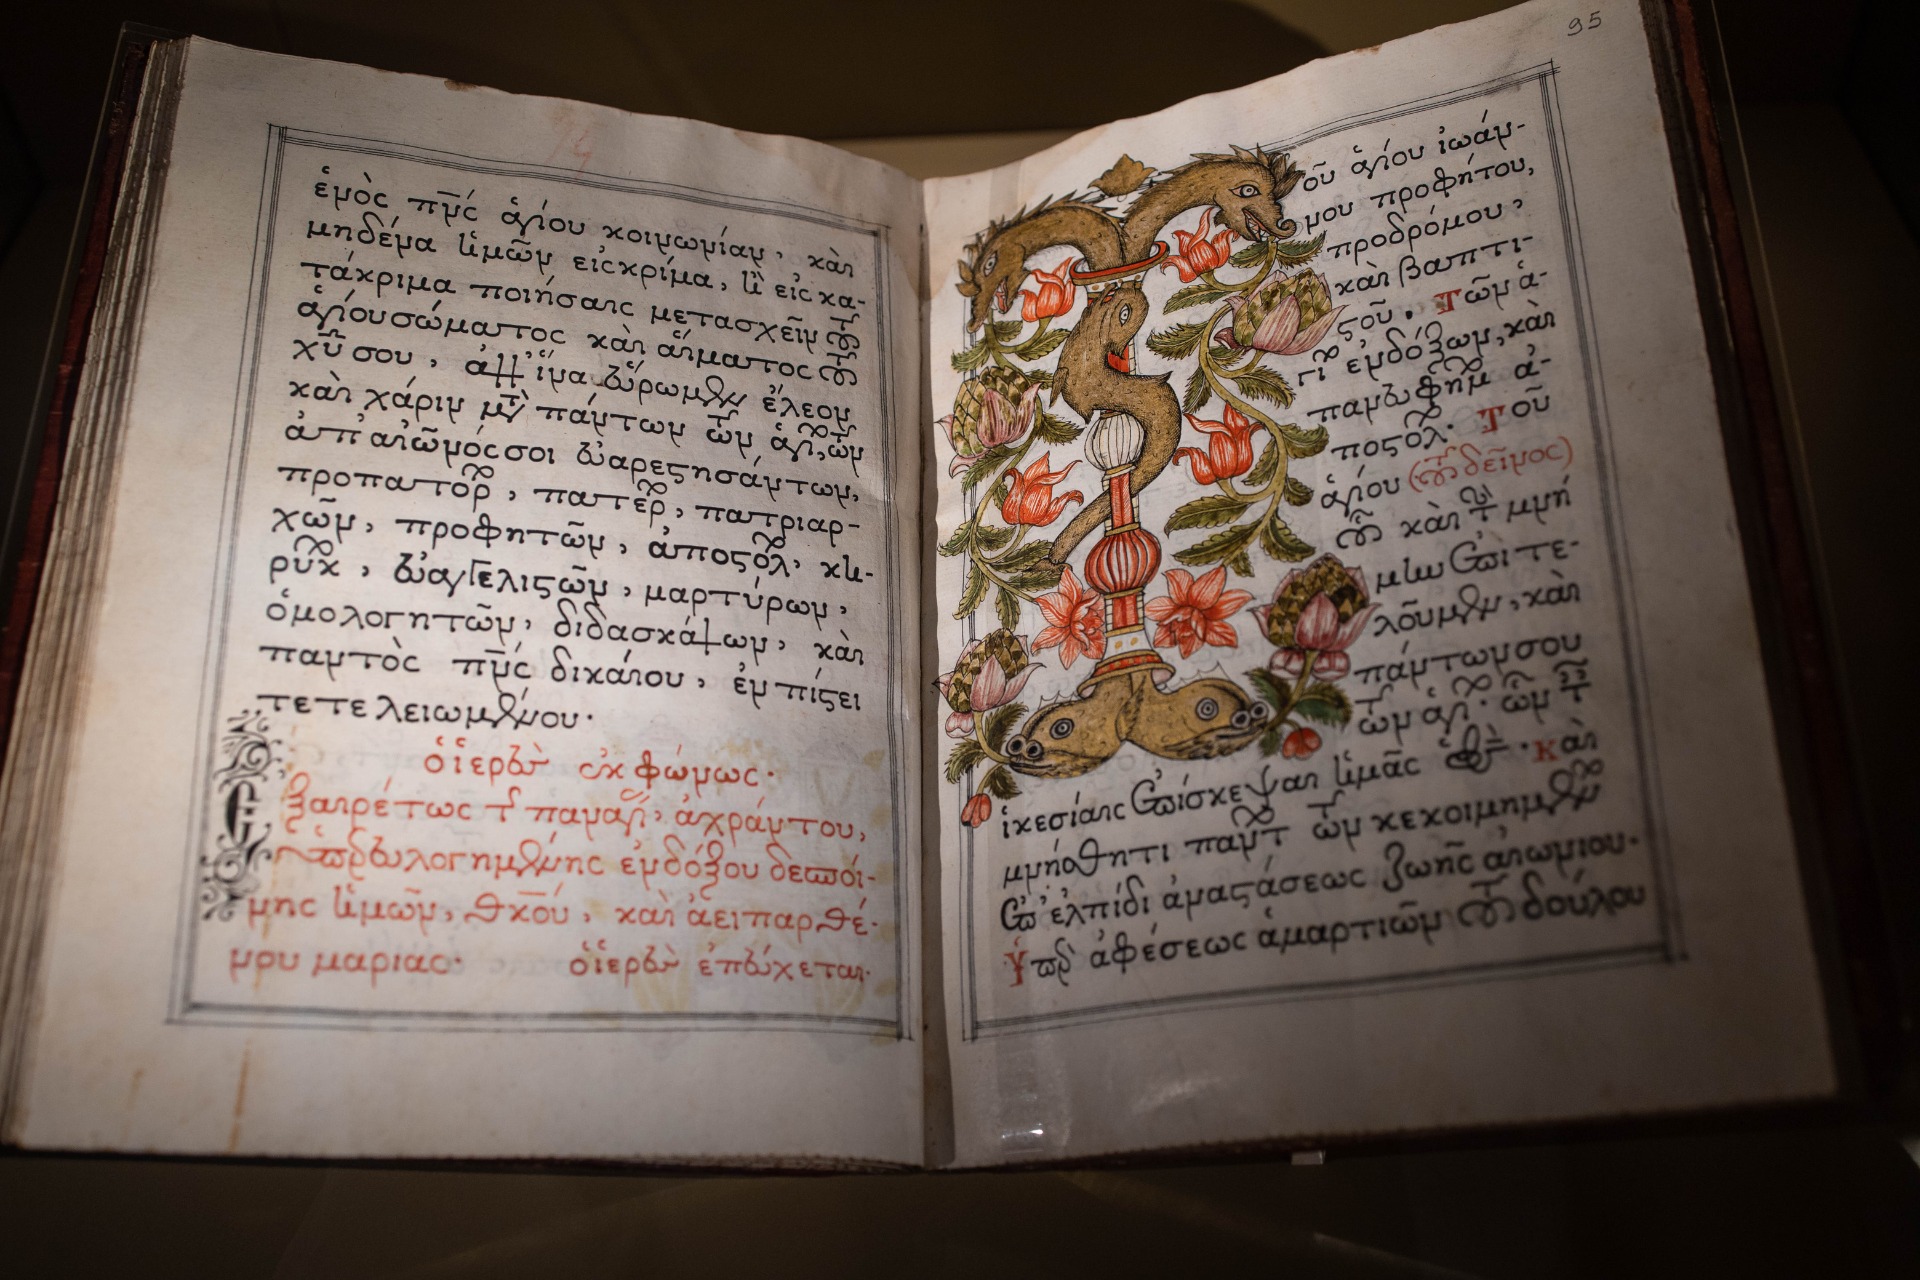 ἑνὸς πν̅ς ἁγίου κοινωνίαν, καὶ
μηδένα ἡμῶν εἰς κρίμα, ἢ εἰς κα-
τάκριμα ποιήσαις μετασχεῖν τοῦ
ἁγίου σώματος καὶ αἵματος τοῦ
χυ̅ σου, ἀλλ' ἵνα εὕρωμεν ἔλεον
καὶ χάριν μετὰ πάντων τῶν ἁγίων
ἀπ' αἰῶνός σοι εὐαρεστησάντων,
προπατόρ, πατέρ, πατριαρ-
χῶν, προφητῶν, ἀποστόλ, κη-
ρύκ, εὐαγγελιστῶν, μαρτύρων,
ὁμολογητῶν, διδασκάλων, καὶ
παντὸς πν̅ς δικαίου, ἐν πίστει
τετελειωμένου.
ὁ ἱερεὺς ἐκφώνως.
Ἐξαιρέτως τῆς παναγί, ἀχράντου,
ὑπερευλογημένης ἐνδόξου δεσποί-
νης ἡμῶν, θκου, καὶ ἀειπαρθέ-
νου μαρίας. ὁ ἱερεὺς ἐπεύχεται.
95
Τοῦ ἁγίου ἰωάν-
νου προφήτου,
προδρόμου,
καὶ βαπτι-
στοῦ. Τῶν ἁ-
γί ἐνδόξων, καὶ
πανευφήμ ἀ-
ποστόλ. Τοῦ
ἁγίου (τοῦ δεῖνος)
οὗ καὶ τὴν μνή
μην ἐπιτε-
λοῦμεν, καὶ
πάντων σου
τῶν ἁγ. ὧν τ
ἱκεσίαις ἐπίσκεψαι ἡμᾶς ὁ θς. Καὶ
μνήσθητι πάντ τῶν κεκοιμημέν
ἐπ' ἐλπίδι ἀναστάσεως ζωῆς αἰωνίου.
Ὑπὲρ ἀφέσεως ἁμαρτιῶν τοῦ δούλου